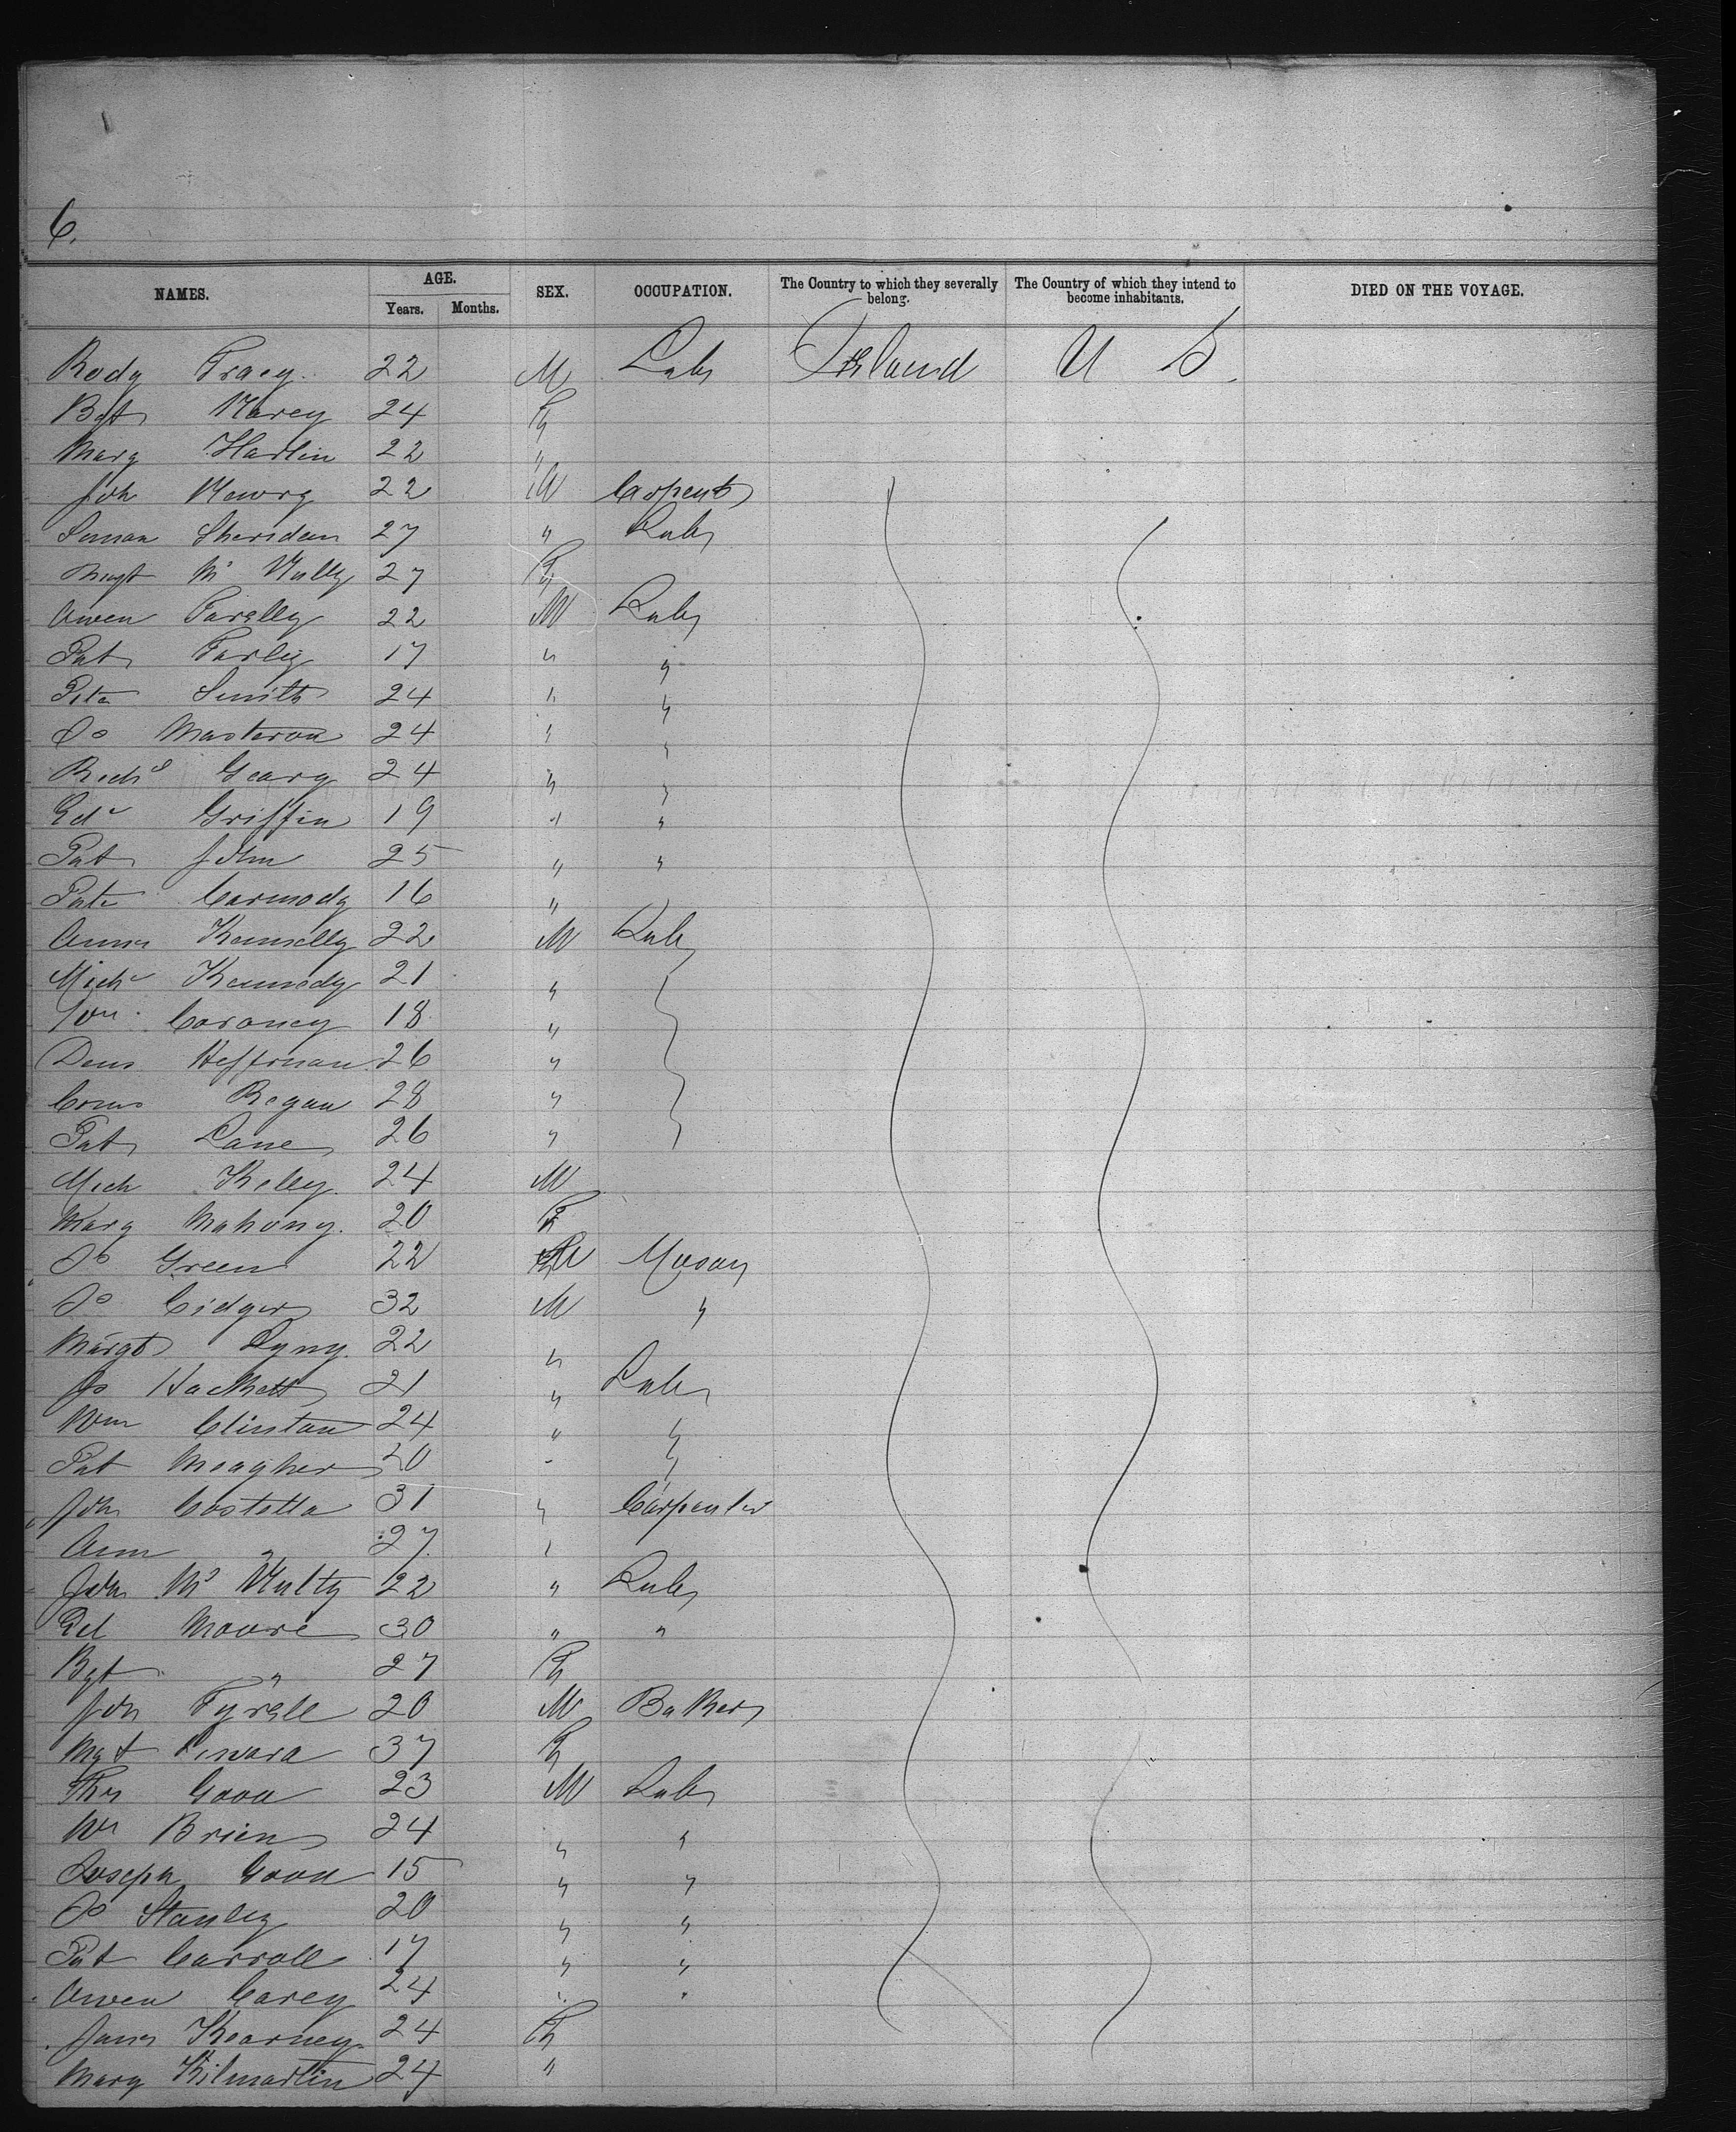 6.
NAMES. AGE. SEX. OCCUPATION. The Country to which they severally belong. The Country of which they intend to become inhabitants. DIED ON THE VOYAGE.
Years. Months.
Rody Tracy 22 M Labr Ireland U S.
Bgt 24 F
Mary Harlin 22 "
Joh 22 M Carpentr
Sheridan 27 " Labr
Mc Nulty 27 F
Owen Farelly 22 M Labr
Pat Farley 17 " "
Peter Smith 24 " "
Do Masterson 24 " "
Richd Geary 24 " "
Edw Griffin 19 " "
Pat John 25 " "
Patk Carmody 16 "
Kennelly 22 M Labr
Michl Kennedy 21 "
Wm 18 "
Denis Heffernan 26 "
Regan 28 "
Pat Lane 26 "
Mich Kelly 24 M
Mary Mahony. 20 F
Do Green 22 M Mason
Do 32 M "
Margt 22 "
Jo Hackett 21 " Labr
Wm Clinton 24 " "
Pat Meagher 20 " "
John Costella 31 " Carpenter
Ann " 27 "
John Mc Nulty 22 " Labr
Ed Moore 30 " "
Bgt " 27 F
John Tyrell 20 M Baker
Mgt 37 F
Ths Good 23 M Labr
Wm Brien 24 " "
Joseph Good 15 " "
Do Stanley 20 " "
Pat Carroll 17 " "
Owen Carey 24 " "
James Kearney 24 F
Mary Kilmartin 24 "